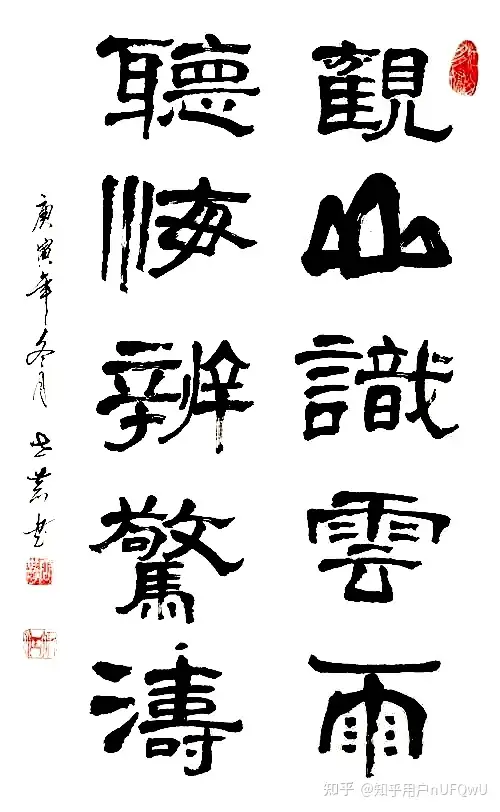 觀山識雲雨
聽海辨驚濤
庚寅年冬月
書
知乎 @知乎用户nUFQwU